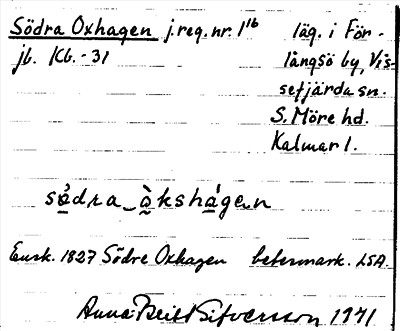 Södra Oxhagen j.reg.nr. 1¹⁶ läg. i För-
jb. Kb.-31 långsö by, Vis-
sefjärda sn.
S. Möre hd.
Kalmar l.
södra_òkshágen
Ensk. 1827 Södre Oxhagen betesmark. LSA.
Anna Britt Sitversson 1971